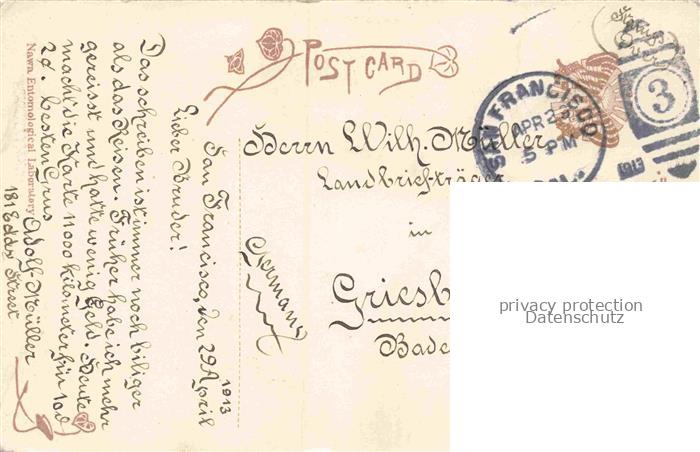 POST CARD
San Francisco, den 29 April
1913
Lieber Bruder!
Das schreiben ist immer noch biliger
als das Reisen. Früher habe ich mehr
gereisst und hatte wenig Geld. Heute
macht die Karte 11000 kilometer für 10 d
2d. besten Grus
Adolf Müller
181 Eddy Street
Nawa Entomological Laboratory
Herrn Wilh. Müller
Landbriefträger
in
Griesb
Bade
Germany
SAN FRANCISCO
APR 2
5 PM
CAL.
3
1913
privacy protection
Datenschutz